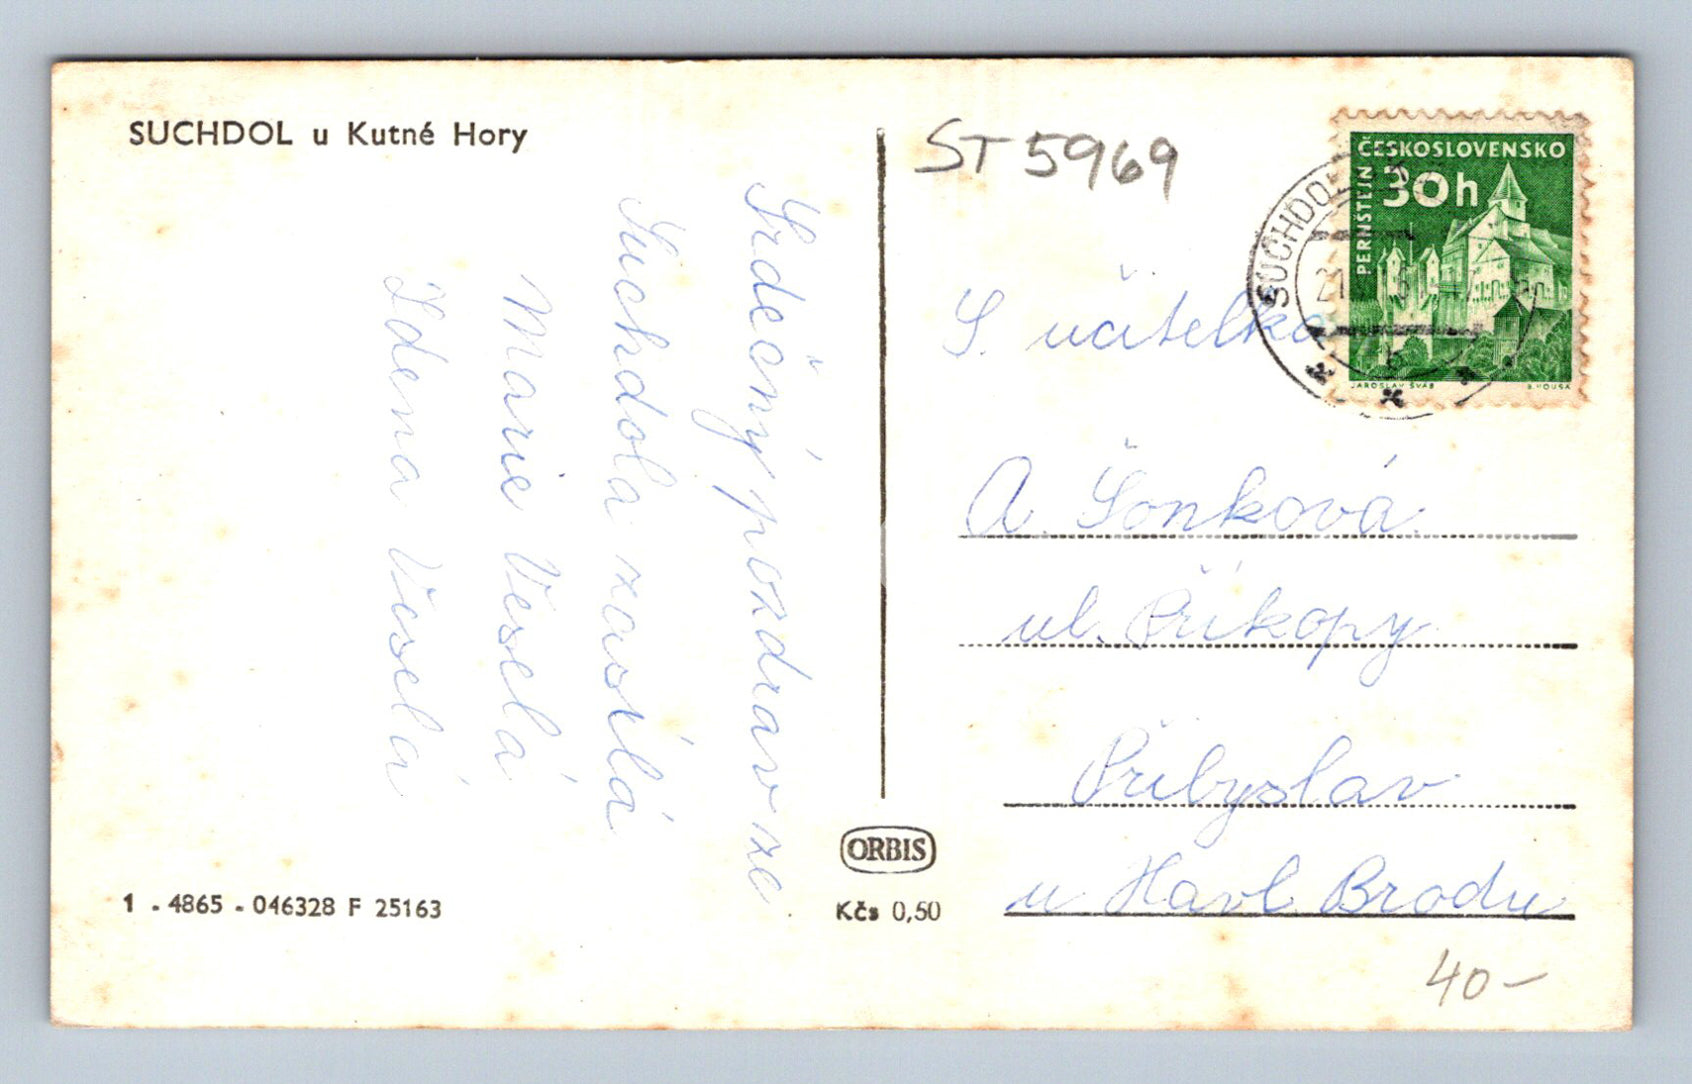 SUCHDOL u Kutné Hory
Srdečný pozdrav ze
Suchdola zasílá
Marie Veselá
Zdena Veselá
1 . 4865 . 046328 F 25163
ORBIS
Kčs 0,50
ST 5969
ČESKOSLOVENSKO
30h
PERNŠTEJN
JAROSLAV ŠVAB
B. HOUSA
SUCHDOL
S. učitelka
A. Šonková
ul. Příkopy
Přibyslav
u Havl. Brodu
40-